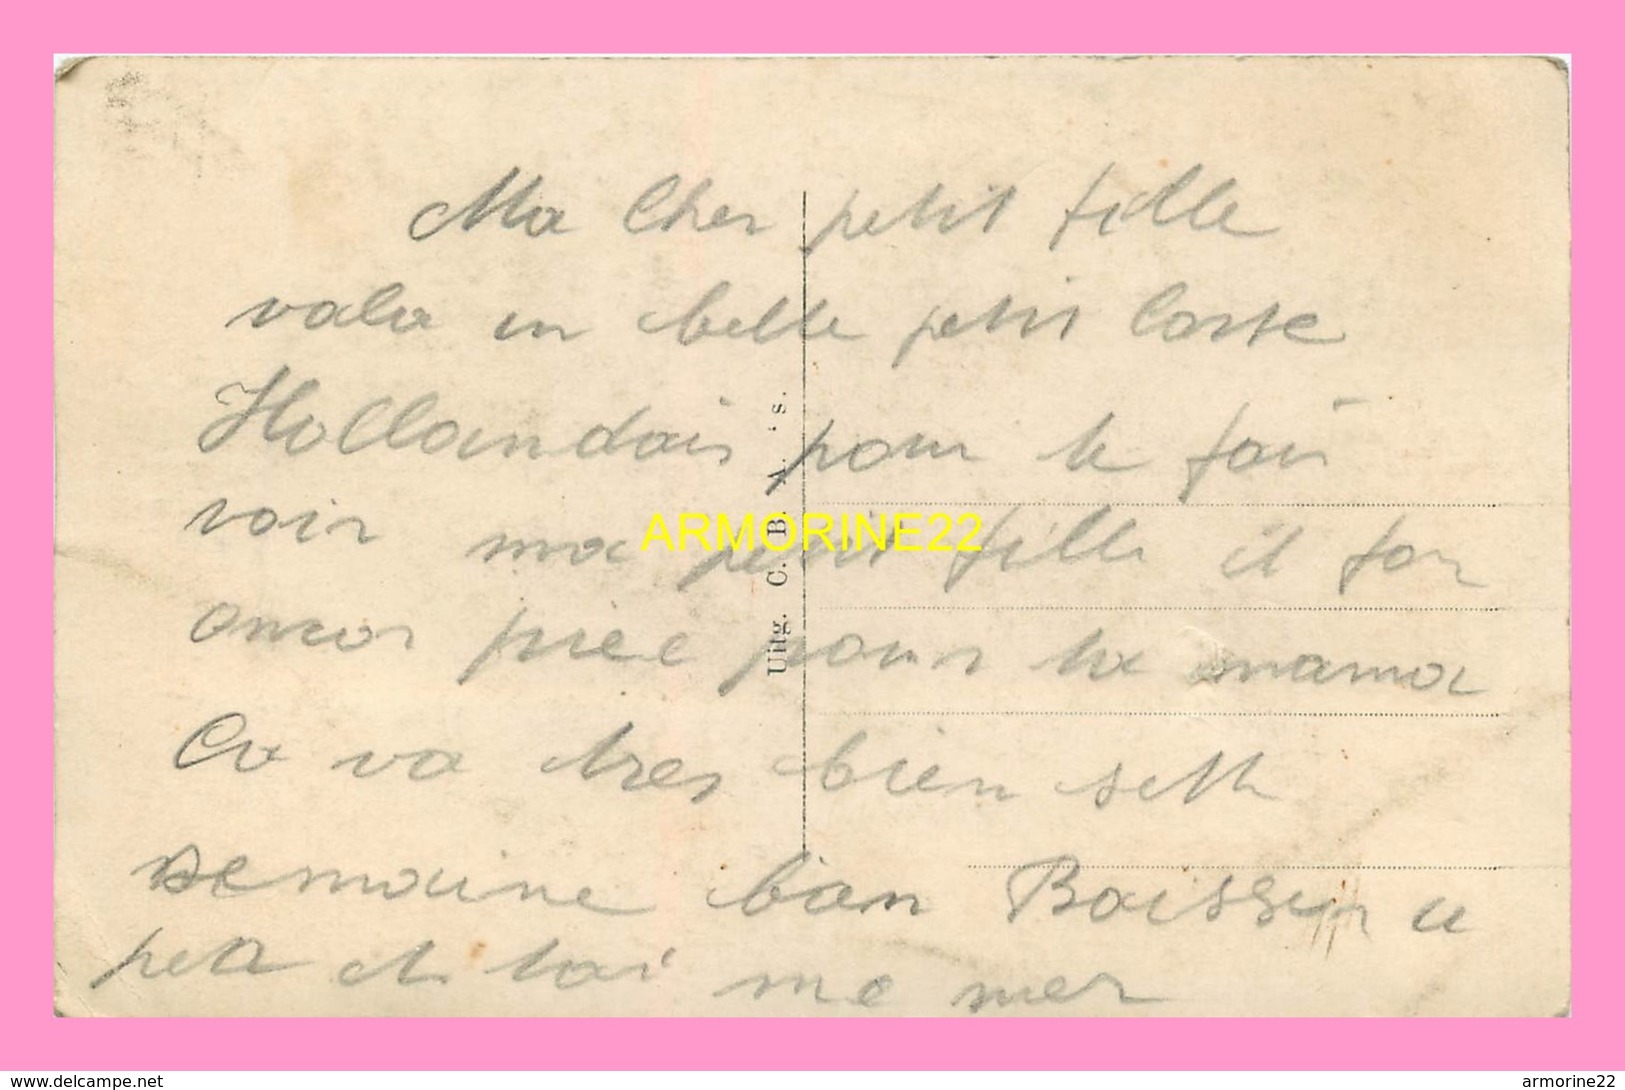 Ma Cher petit fille
vala un belle petit Carte
Hollandais pour te fair
voir ma petit fille il fau
ancor priee pour ta mama
Ca va tres bien sette
semaine bon Baisser a
peta et toi me mer
Uitg. C. B. A. 's.
ARMORINE22
www.delcampe.net
armorine22